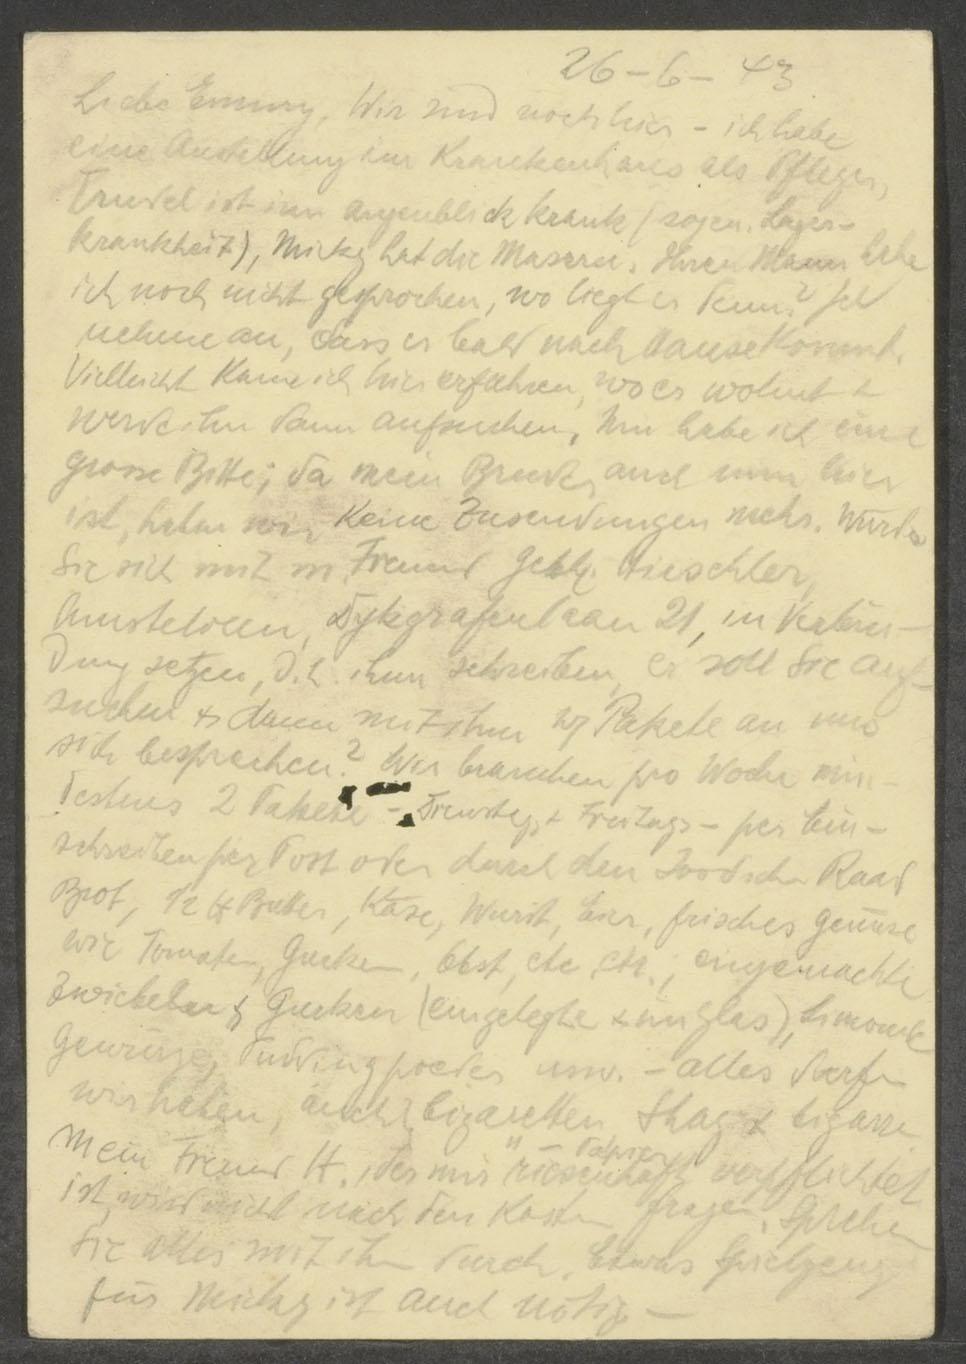 26-6-43
Liebe Emmy, Wir sind noch hier - ich habe
eine Anstellung im Krankenhaus als Pfleger,
Trudel ist im augenblick krank (sogen. Lager-
krankheit), Micky hat die Masern. Ihren Mann habe
ich noch nicht gesprochen, wo liegt er denn? Ich
nehme an, dass er bald nach Hause kommt.
Vielleicht kann ich hier erfahren, wo er wohnt +
werde ihn dann aufsuchen. Nun habe ich eine
grosse Bitte; da mein Bruder auch nun hier
ist, haben wir keine Zusendungen mehr. Würden
Sie sich mit m. Freund Gebhg. Hieschler,
Amstelveen, Dykgrafenlaan 21, in Verbin-
dung setzen, d.h. ihm schreiben, er soll Sie auf-
suchen & dann mit ihm w/ Pakete an uns
sich besprechen? Wir brauchen pro Woche min-
destens 2 Pakete - Dienstags + Freitags - per Ein-
schreiben per Post oder durch den Joodschen Raad
Brot, 1/2 ℔ Butter, Käse, Wurst, Eier, frisches Gemüse
wie Tomaten, Gurken, Obst, etc. etc.; eingemachte
Zwiebeln & Gurken (eingelegte + im glas), Limonade
Gewürze, Puddingpoeder usw. - alles dürfen
wir haben, auch Cigaretten Shag & Cigarren
- Papier
Mein Freund H., der mir "riesenhaft verpflichtet
ist, wird nicht nach den Kosten fragen. Sprechen
Sie alles mit ihm durch. Etwas Spielzeug
für Micky ist auch nötig -